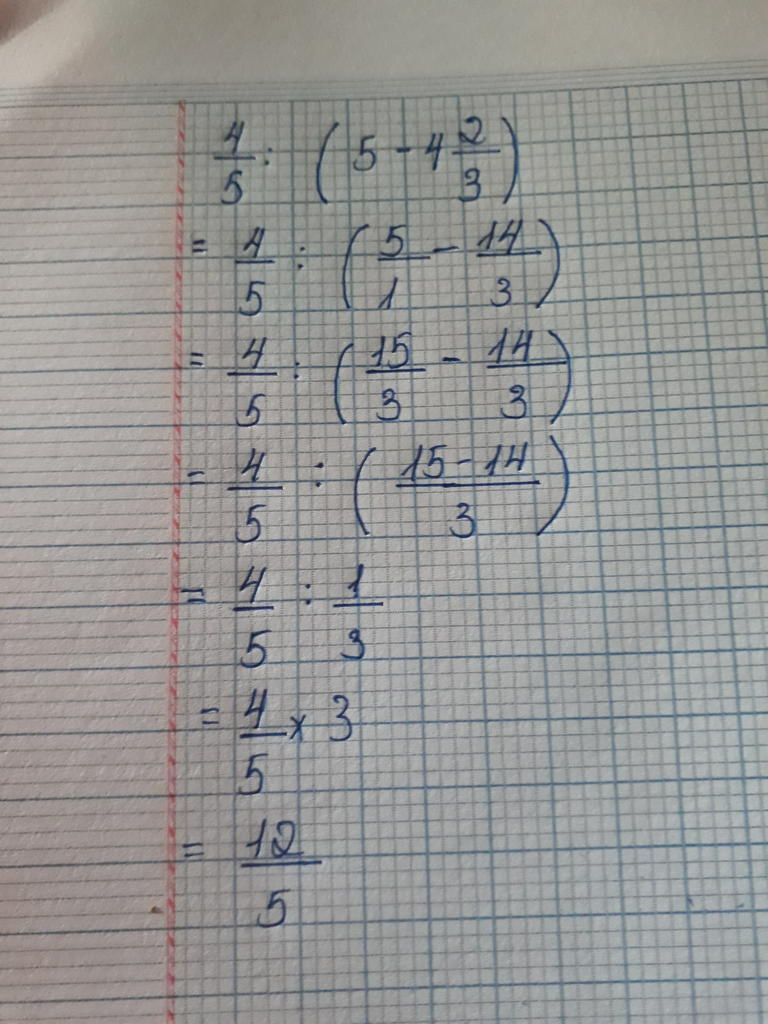 4/5 : (5 - 4 2/3)
= 4/5 : (5/1 - 14/3)
= 4/5 : (15/3 - 14/3)
= 4/5 : (15-14/3)
= 4/5 : 1/3
= 4/5 × 3
= 12/5